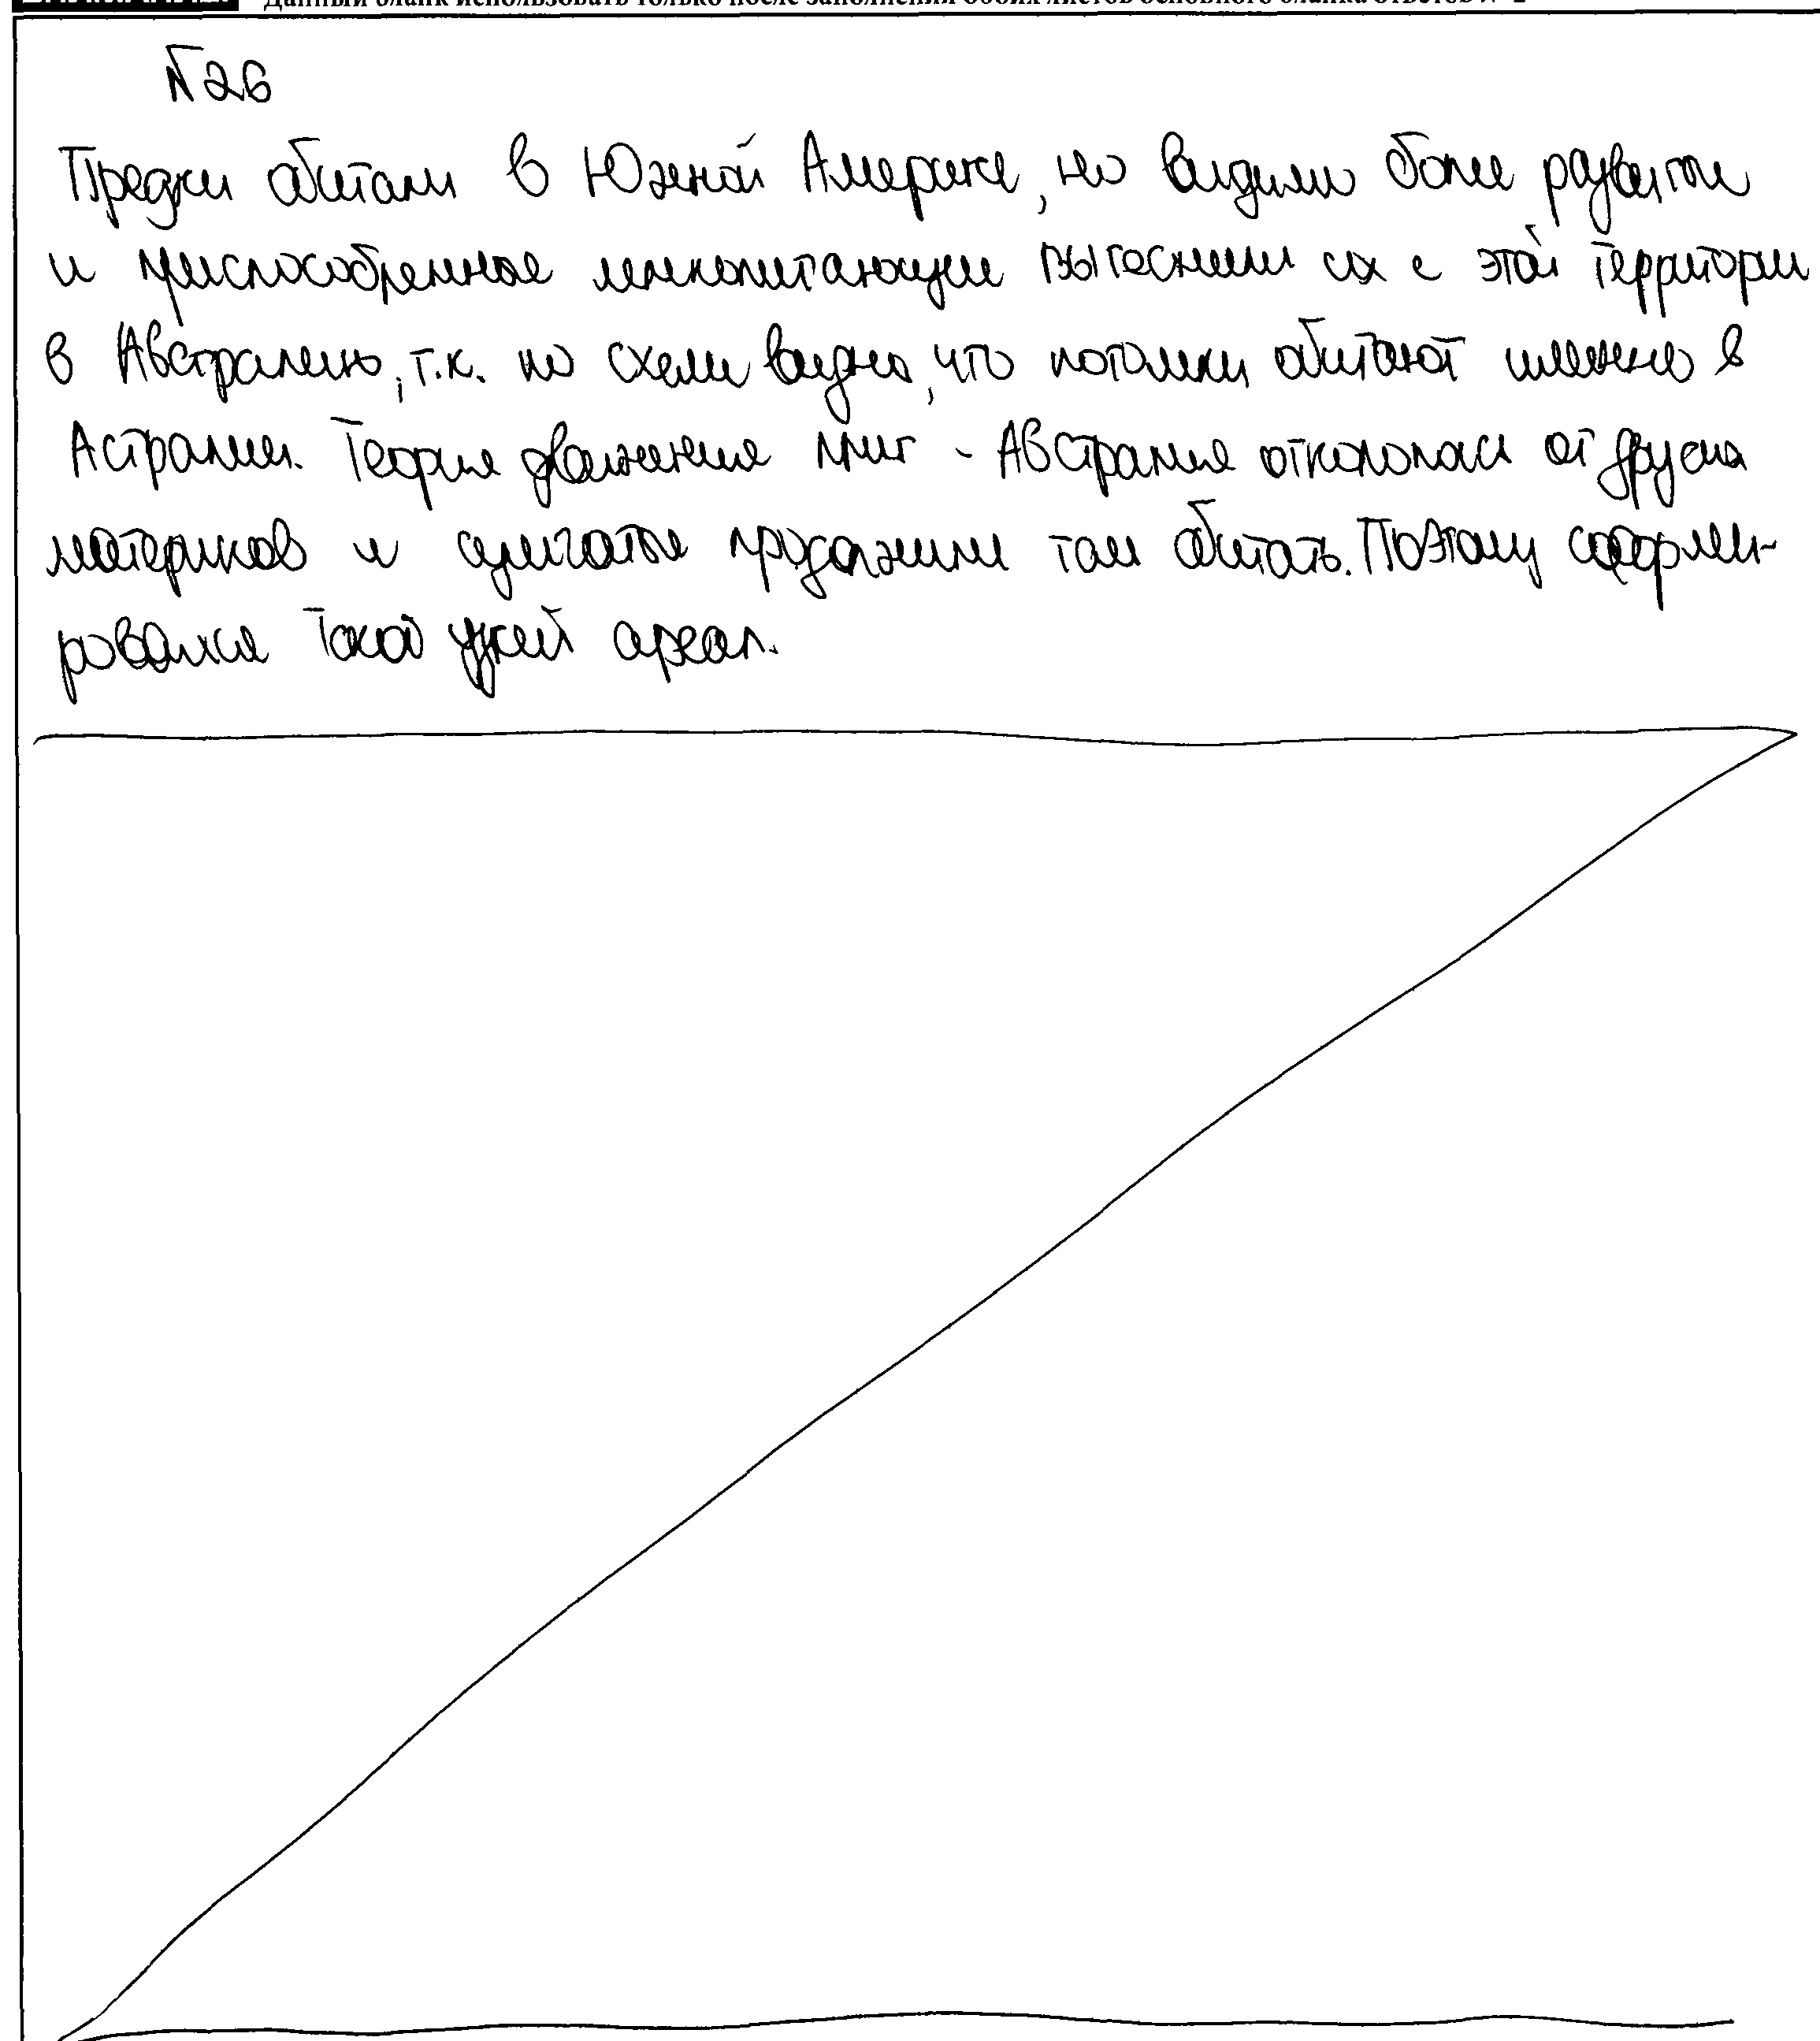 Данный бланк использовать только после заполнения обоих листов основного бланка ответов № 2
№26
Предки обитали в Южной Америке, но видимо более развитые
и приспособленные млекопитающие вытеснили их с этой территории
в Австралию, т.к. по схеме видно, что потомки обитают именно в
Астралии. Теория движения плит - Австралия откололась от других
материков и сумчатые продолжили там обитать. Поэтому сформи-
ровался такой узкий ареал.